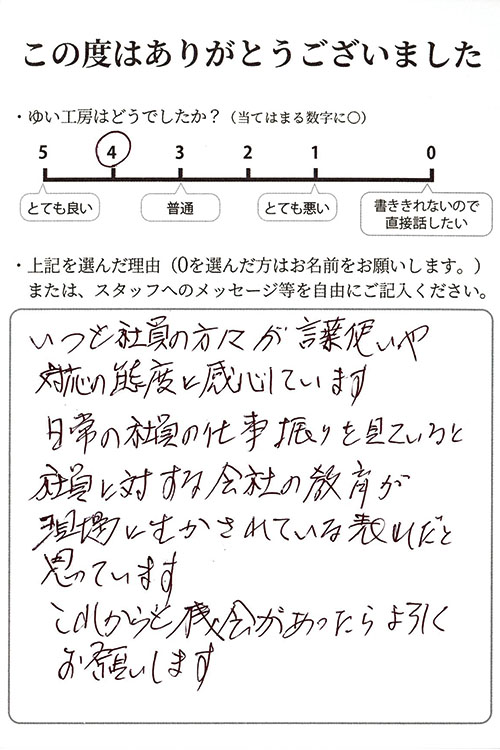 この度はありがとうございました
・ゆい工房はどうでしたか？（当てはまる数字に〇）
5 4 3 2 1 0
とても良い 普通 とても悪い 書ききれないので
直接話したい
・上記を選んだ理由（0を選んだ方はお名前をお願いします。）
または、スタッフへのメッセージ等を自由にご記入ください。
いつも社員の方々が言葉使いや
対応の態度に感心しています
日常の社員の仕事振りを見ていると
社員に対する会社の教育が
現場に生かされている表れだと
思っています
これからも機会があったらよろしく
お願いします